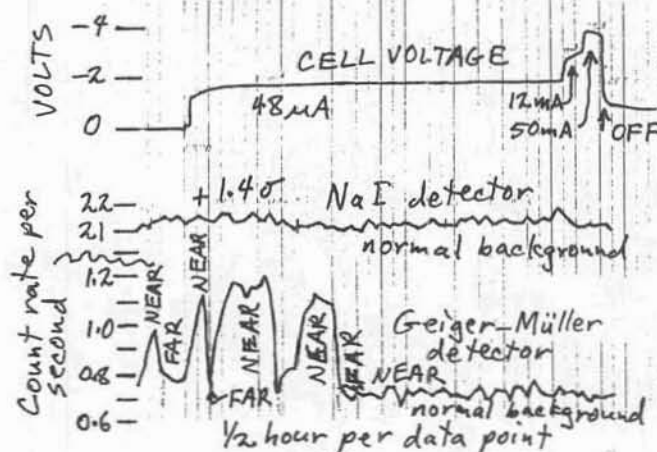 -4
VOLTS
-2
0
CELL VOLTAGE
48μA
12mA
50mA
OFF
Count rate per second
22
21
+1.4σ
NaI detector
normal background
1.2
1.0
0.8
0.6
NEAR
FAR
NEAR
FAR
NEAR
NEAR
NEAR
Geiger-Müller
detector
normal background
½ hour per data point